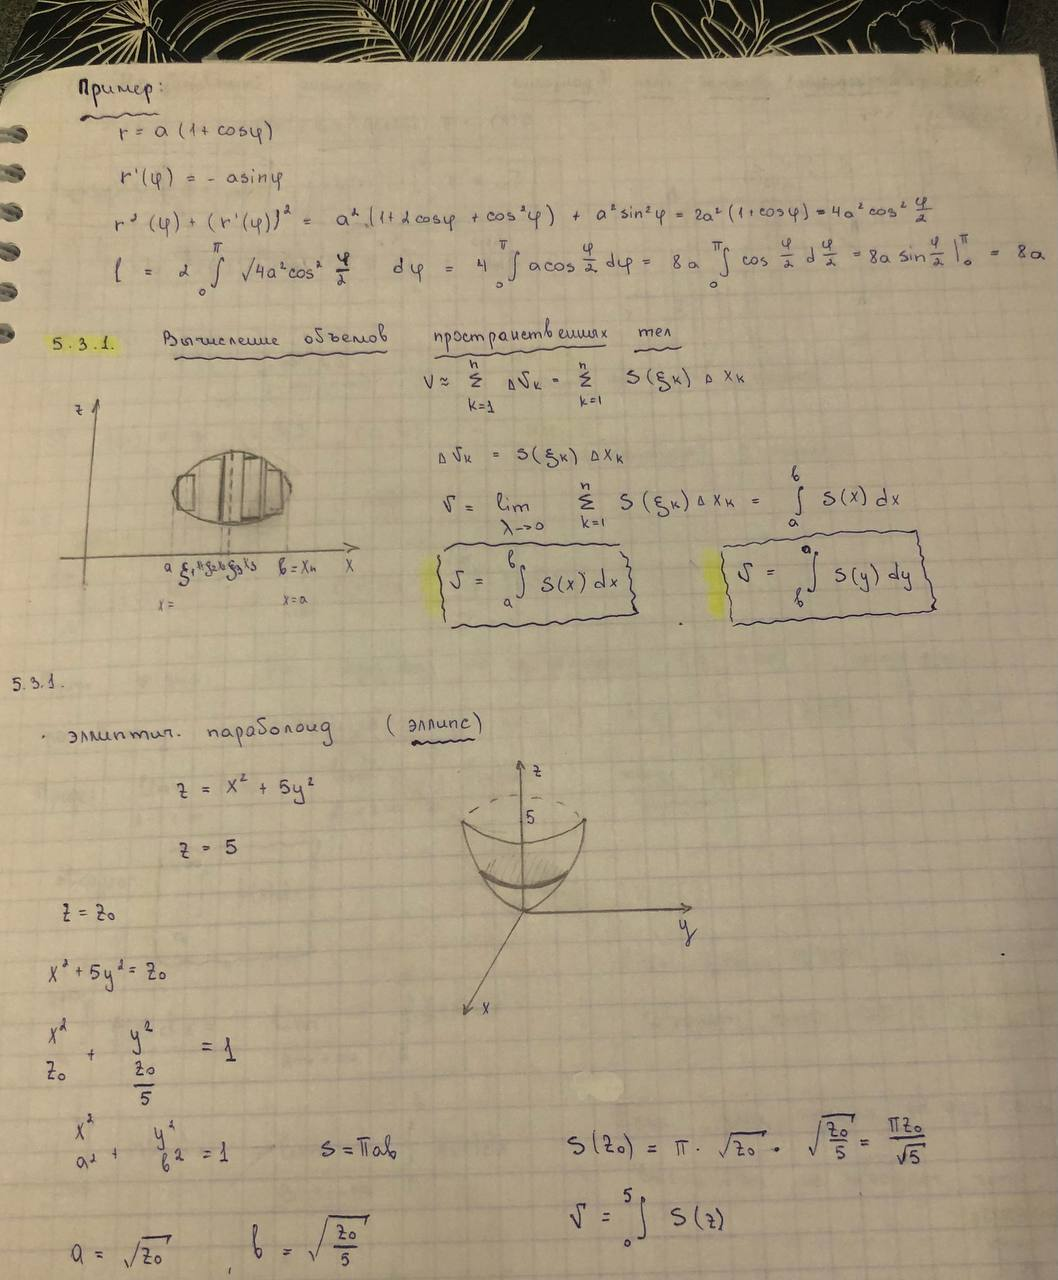 Пример:
r = a (1 + cosφ)
r'(φ) = - asinφ
r² (φ) + (r'(φ))² = a² (1+2cosφ + cos²φ) + a² sin²φ = 2a² (1+cosφ) = 4a² cos² φ/2
l = 2 ∫₀^π √4a²cos² φ/2 dφ = 4 ∫₀^π a cos φ/2 dφ = 8a ∫₀^π cos φ/2 d φ/2 = 8a sin φ/2 |₀^π = 8a
5.3.1. Вычисление объемов пространственных тел
V ≈ Σ_{k=1}^n ΔV_k = Σ_{k=1}^n S(ξ_k) Δ x_k
z
ΔV_k = S(ξ_k) Δx_k
V = lim_{λ→0} Σ_{k=1}^n S(ξ_k) Δ x_k = ∫_a^b S(x) dx
a ξ₁ ξ₃ x₃ b = x_n x
V = ∫_a^b S(x) dx V = ∫_b^a S(y) dy
x = x = a
5.3.1.
· эллиптич. параболоид (эллипс)
z = x² + 5y²
z
5
z = 5
z = z₀
y
x² + 5y² = z₀
x
x²/z₀ + y²/(z₀/5) = 1
x²/a² + y²/b² = 1 S = πab S(z₀) = π · √z₀ · √(z₀/5) = πz₀/√5
V = ∫₀^5 S(z)
a = √z₀ , b = √(z₀/5)